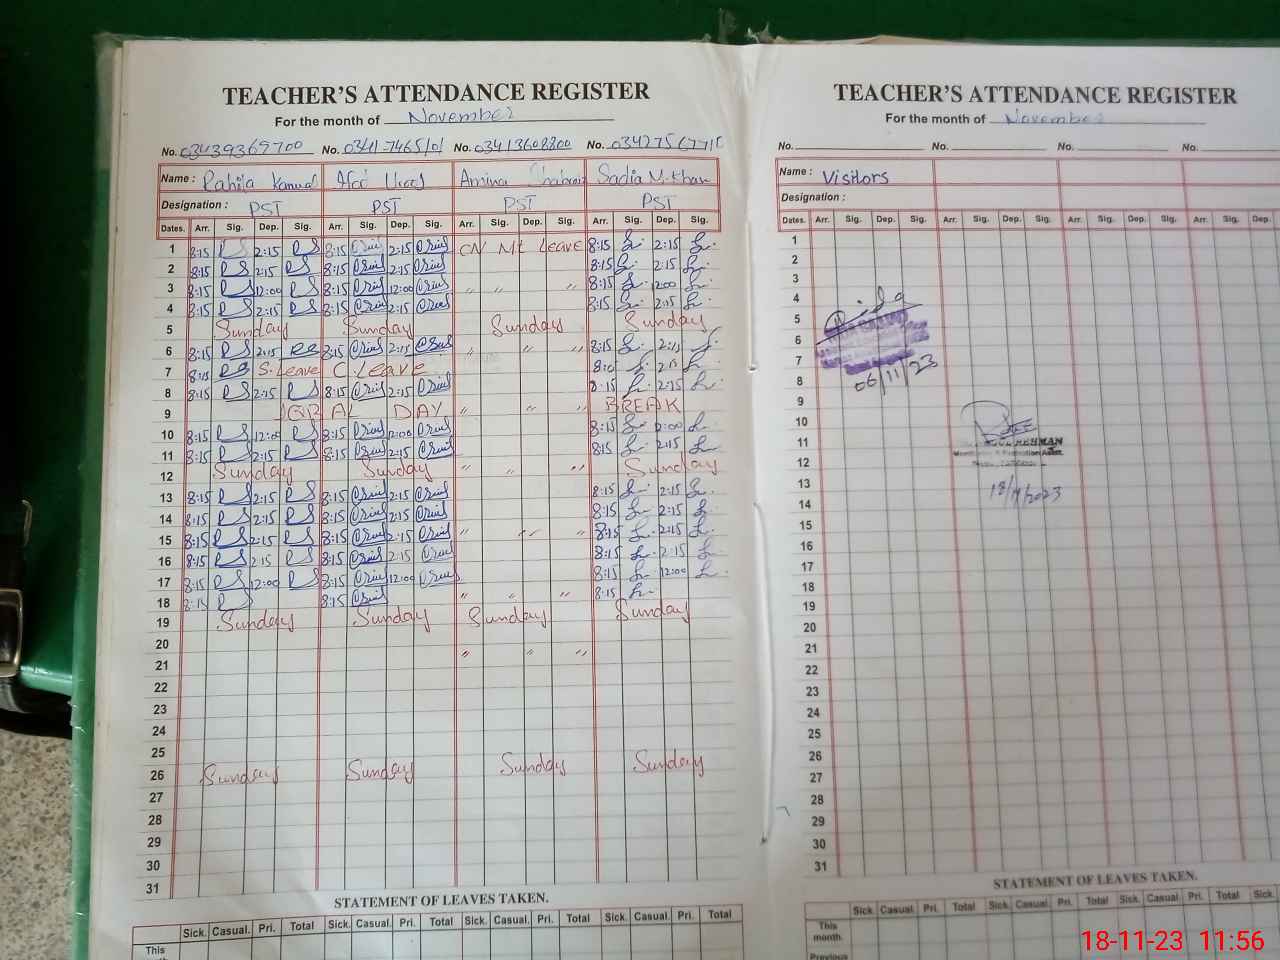 TEACHER'S ATTENDANCE REGISTER
For the month of November
No. 03439369700 No. No. 03413608800 No.
Name : Rahila Kanwal Amina Sadia M. Khan
Designation : PST PST PST PST
Dates. Arr. Sig. Dep. Sig. Arr. Sig. Dep. Sig. Arr. Sig. Dep. Sig. Arr. Sig. Dep. Sig.
1 8:15 2:15 8:15 2:15 ON Leave 8:15 2:15
2 8:15 2:15 8:15 2:15 8:15 2:15
3 8:15 12:00 8:15 12:00 " " " 8:15 12:00
4 8:15 2:15 8:15 2:15 8:15 2:15
5 Sunday Sunday Sunday Sunday
6 8:15 2:15 8:15 2:15 " " " 8:15 2:15
7 8:15 S. Leave C. Leave 2:15
8 8:15 2:15 8:15 2:15 8:15 2:15
9 IQBAL DAY " " " BREAK
10 8:15 12:00 8:15 12:00 8:15 12:00
11 8:15 2:15 8:15 2:15 8:15 2:15
12 Sunday Sunday " " " Sunday
13 8:15 2:15 8:15 2:15 8:15 2:15
14 8:15 2:15 8:15 2:15 8:15 2:15
15 8:15 2:15 8:15 2:15 " " " 8:15 2:15
16 8:15 2:15 8:15 2:15 8:15 2:15
17 8:15 12:00 8:15 12:00 8:15 12:00
18 8:15 8:15 " " " 8:15
19 Sunday Sunday Sunday Sunday
20
21 " " "
22
23
24
25
26 Sunday Sunday Sunday Sunday
27
28
29
30
31
STATEMENT OF LEAVES TAKEN.
Sick. Casual. Pri. Total Sick. Casual. Pri. Total Sick. Casual. Pri. Total Sick. Casual. Pri. Total
This
TEACHER'S ATTENDANCE REGISTER
For the month of November
No. No. No. No.
Name : Visitors
Designation :
Dates. Arr. Sig. Dep. Sig. Arr. Sig. Dep. Sig. Arr. Sig. Dep. Sig. Arr. Sig.
1
2
3
4
5
6
7
06/11/23
8
9
10
11
REHMAN
12
13
18/11/2023
14
15
16
17
18
19
20
21
22
23
24
25
26
27
28
29
30
31
STATEMENT OF LEAVES TAKEN.
Sick. Casual. Pri. Total Sick. Casual. Pri. Total Sick. Casual. Pri. Total Sick. Casual.
This month.
Previous
18-11-23 11:56